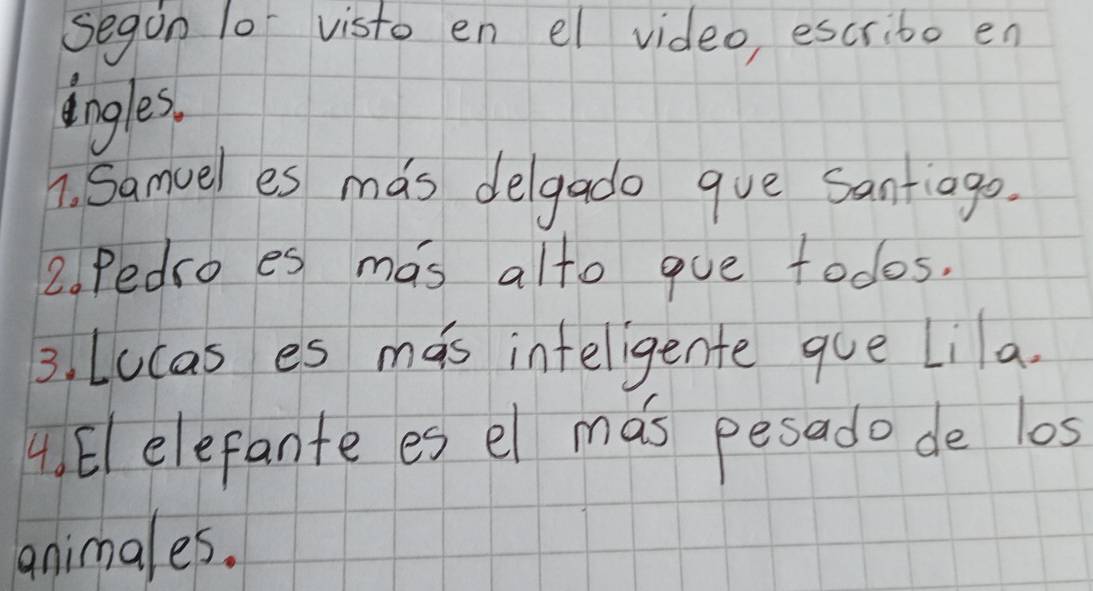 según lo visto en el video, escribo en
ingles.
1. Samuel es más delgado que Santiago.
2. Pedro es más alto que todos.
3. Lucas es más inteligente que Lila.
4. El elefante es el más pesado de los
animales.